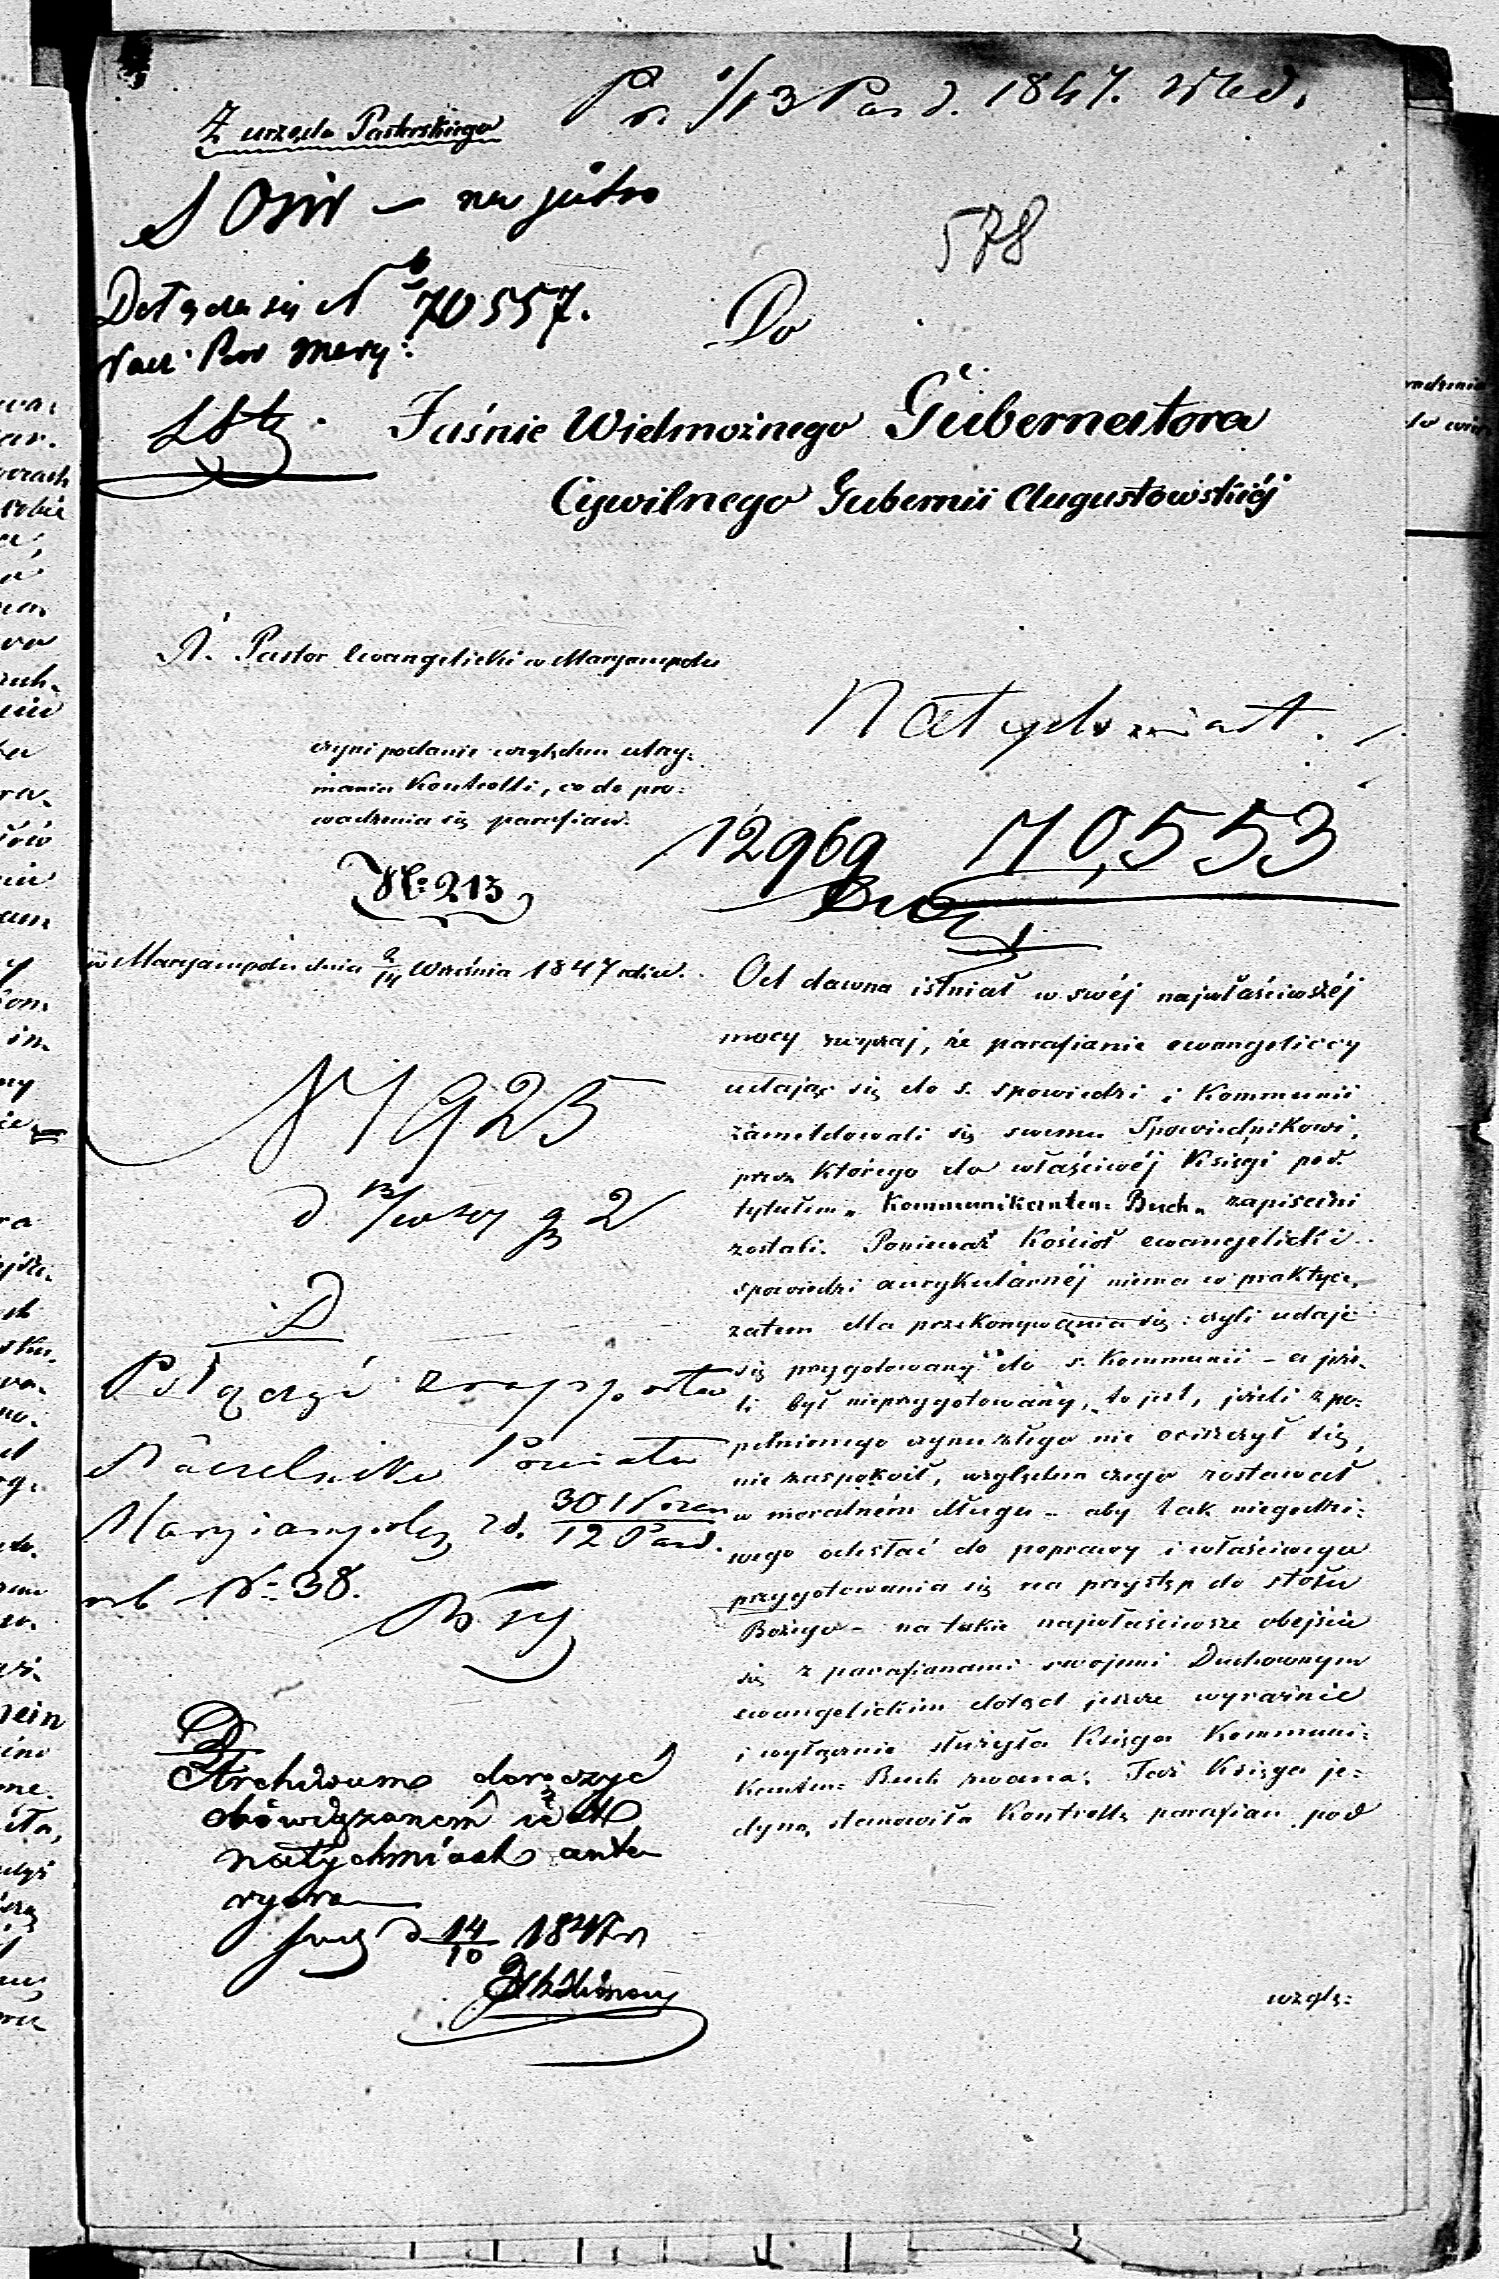 Pr. 1/13 Paźd. 1847. Wied.
Z urzędu Pastorskiego
na jutro
578
Dotycza się N 70557.
Nacz. Pow Mary:
Do
Jaśnie Wielmożnego Gubernatora
Cywilnego Gubernii Augustowskiéj
N. Pastor Ewangelicki w Maryampolu
Natychmiast.
czyni podanie względem utrzy:
mania Kontrolli, co do pro:
wadzenia się parafian.
12969 70,553
No 213
w Maryampolu dnia 2/14 Września 1847 roku.
Od dawna istniał w swéj najwłaściwszéj
mocy zwyczaj, że parafianie ewangeliccy
udając się do s. spowiedzi i Kommunii
zameldowali się swemu Spowiednikowi,
przez którego do właściwéj Księgi pod
tytułem „Kommunikanten-Buch„ zapisani
zostali. Ponieważ Kościoł ewangelicki
spowiedzi aurykularnéj niema w praktyce,
zatem dla przekonywania się: czyli udaje
się przygotowany do s. Kommunii – a jeże-
li był nieprzygotowany, to jest, jeżeli z po-
pełnionego czynu złego nie oczyszczył się,
nie zaspokoił, względem czego zostawał
w moralném długu – aby tak niegodzi-
wego odesłać do poprawy i właściwego
przygotowania się na przystęp do stołu
Bożego – na takie najwłaściwsze obejście
się z parafianami swojemi Duchownym
ewangelickim dotąd jeszcze wyraźnie
i wyłącznie służyła Księga Kommuni-
kanten-Buch zwana. Taż Księga je-
dyną stanowiła Kontrollę parafian pod
wzglę:
N 1925
D
Połączyć z rapportem
Naczelnika Powiatu
Maryampolsg z d. 30 Wrześ/12 Paźd.
No 38.
D
Archiwum doręczyć
obowiązanem jest
natychmiast ante
ryora
d 14/10 1847 r